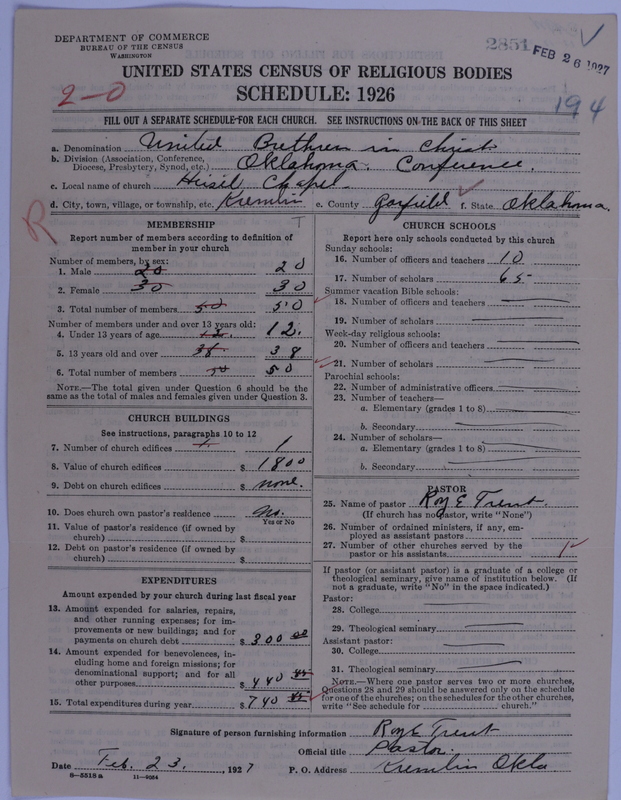 DEPARTMENT OF COMMERCE
BUREAU OF THE CENSUS
WASHINGTON
2851 FEB 26 1927
UNITED STATES CENSUS OF RELIGIOUS BODIES
SCHEDULE: 1926
2-0
194
FILL OUT A SEPARATE SCHEDULE FOR EACH CHURCH. SEE INSTRUCTIONS ON THE BACK OF THIS SHEET
a. Denomination United Brethren in Christ
b. Division (Association, Conference, Diocese, Presbytery, Synod, etc.) Oklahoma Conference.
c. Local name of church Chapel
d. City, town, village, or township, etc. Kremlin e. County Garfield f. State Oklahoma.
R
MEMBERSHIP
Report number of members according to definition of member in your church
Number of members, by sex:
1. Male 20 20
2. Female 30 30
3. Total number of members 50 50
Number of members under and over 13 years old:
4. Under 13 years of age 12 12.
5. 13 years old and over 38 38
6. Total number of members 50 50
NOTE.—The total given under Question 6 should be the same as the total of males and females given under Question 3.
CHURCH BUILDINGS
See instructions, paragraphs 10 to 12
7. Number of church edifices 1 1
8. Value of church edifices $ 1800
9. Debt on church edifices $ none.
10. Does church own pastor's residence No.
Yes or No
11. Value of pastor's residence (if owned by church) $
12. Debt on pastor's residence (if owned by church) $
EXPENDITURES
Amount expended by your church during last fiscal year
13. Amount expended for salaries, repairs, and other running expenses; for improvements or new buildings; and for payments on church debt $ 300 00
14. Amount expended for benevolences, including home and foreign missions; for denominational support; and for all other purposes $ 440 45
15. Total expenditures during year $ 740 45
CHURCH SCHOOLS
Report here only schools conducted by this church
Sunday schools:
16. Number of officers and teachers 10
17. Number of scholars 65
Summer vacation Bible schools:
18. Number of officers and teachers
19. Number of scholars
Week-day religious schools:
20. Number of officers and teachers
21. Number of scholars
Parochial schools:
22. Number of administrative officers
23. Number of teachers—
a. Elementary (grades 1 to 8)
b. Secondary
24. Number of scholars—
a. Elementary (grades 1 to 8)
b. Secondary
PASTOR
25. Name of pastor Roy E Trent.
(If church has no pastor, write "None")
26. Number of ordained ministers, if any, employed as assistant pastors
27. Number of other churches served by the pastor or his assistants 1
If pastor (or assistant pastor) is a graduate of a college or theological seminary, give name of institution below. (If not a graduate, write "No" in the space indicated.)
Pastor:
28. College
29. Theological seminary
Assistant pastor:
30. College
31. Theological seminary
NOTE.—Where one pastor serves two or more churches, Questions 28 and 29 should be answered only on the schedule for one of the churches; on the schedules for the other churches, write "See schedule for church."
Signature of person furnishing information Roy E Trent
Official title Pastor.
Date Feb. 23, 1927 P. O. Address Kremlin Okla
8-5518 a 11-9054